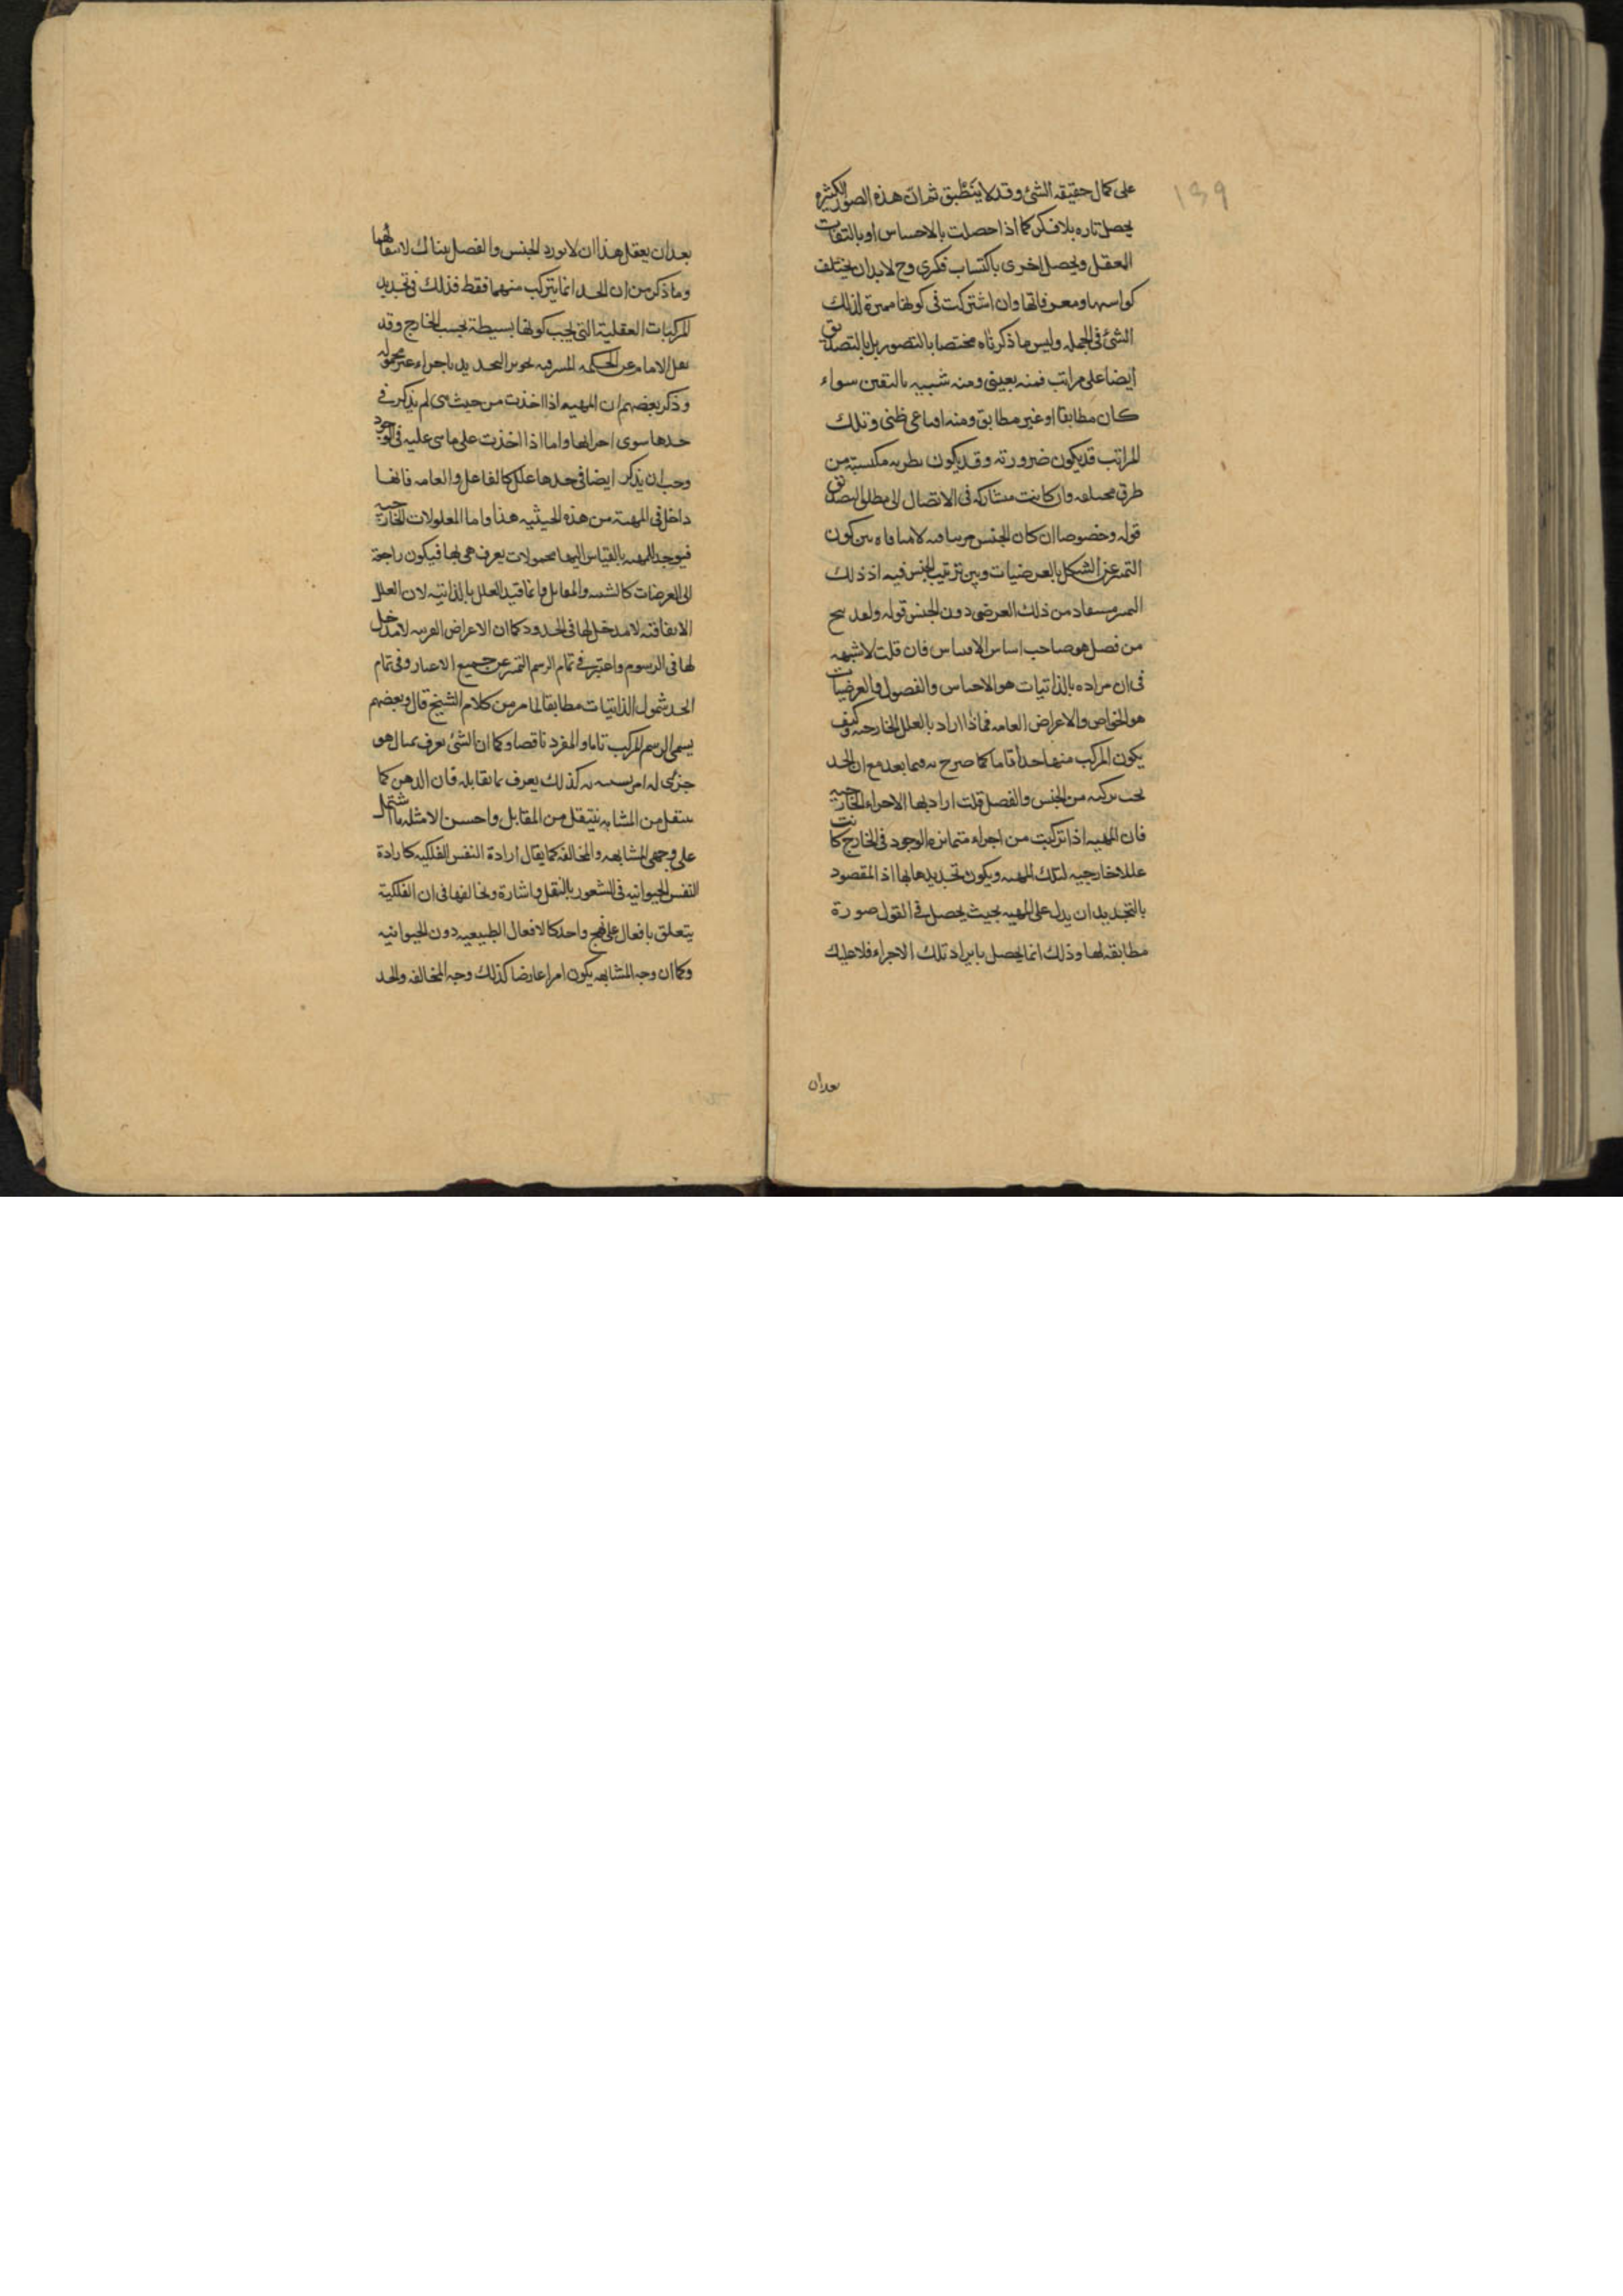 ١٣٩
على كمال حقيقه الشئ وقد لا ينطبق ثم ان هذه الصور الكثيره
يحصل تاره بلا فكر كما اذا حصلت بالاحساس او بالتفات
العقل ويحصل اخرى باكتساب فكرى وح لابد ان يختلف
كواسبها ومعرفاتها وان اشتركت فى كونها مميزة لذلك
الشئ فى الجمله وليس ما ذكرناه مختصا بالتصور بل بالتصديق
ايضا على مراتب فمنه يقينى ومنه شبيه باليقين سواء
كان مطابقا او غير مطابق ومنه اقناعى ظنى وتلك
المراتب قد يكون ضرورته وقد يكون نظريه مكتسبة من
طرق مختلفه وان كانت متشاركه فى الاتصال الى مطلق التصديق
قوله وخصوصا ان كان الجنس قريبا فيه لا منافاه بين كون
التميز عن الشكل بالعرضيات وبين ترتيب الجنس فيه اذ ذلك
التميز مستفاد من ذلك العرضى دون الجنس قوله ولعد سح
من فصل هو صاحب اساس الاقتباس فان قلت لا شبهه
فى ان مراده بالذاتيات هو الاجناس والفصول وبالعرضيات
هو الخواص والاعراض العامه فماذا اراد بالعلل الخارجيه وكيف
يكون المركب منها حدا تاما كما صرح به فيما بعد مع ان الحد
يجب تركبه من الجنس والفصل قلت اراد بها الاجزاء الخارجيه
فان المهيه اذا تركبت من اجزاء متمايزه الوجود فى الخارج كانت
عللا خارجيه لتلك المهيه ويكون تحديدها بها اذ المقصود
بالتحديد ان يدل على المهيه بحيث يحصل فى القول صورة
مطابقه لها وذلك انما يحصل بايراد تلك الاجزاء فلا عليك
بعد ان
بعد ان يعقل هذا ان لا يورد الجنس والفصل هناك لانتفائهما
وما ذكر من ان الحد انما يتركب منهما فقط فذلك فى تحديد
المركبات العقلية التى يجب كونها بسيطة بحسب الخارج وقد
نقل الامام عن الحكمه المشرقيه تجويز التحديد باجزاء غير محموله
وذكر بعضهم ان المهيه اذا اخذت من حيث هى لم يذكر فى
حدها سوى اجزائها واما اذا اخذت على ما هى عليه فى الوجود
وجب ان يذكر ايضا فى حدها علل كالفاعل والغايه فانها
داخل فى المهية من هذه الحيثيه هذا واما المعلولات الخارجيه
فيوجد للمهيه بالقياس اليها محمولات يعرف هى بها فيكون راجعة
الى العرضيات كالشبيه والمقابل وانما قيد العلل بالذاتيه لان العلل
الاتفاقيه لا مدخل لها فى الحدود كما ان الاعراض الغريبه لا مدخل
لها فى الرسوم واعتبر فى تمام الرسم التميز عن جميع الاغيار وفى تمام
الحد شمول الذاتيات مطابقا لما مر من كلام الشيخ قال وبعضهم
يسمى الرسم المركب تاما والمفرد ناقصا وكما ان الشئ يعرف بمثال هو
جزئى له او شبيه به كذلك يعرف بما يقابله فان الذهن كما
ينتقل من المشابه ينتقل من المقابل واحسن الامثله ما اشتمل
على وجهى المشابهه والمخالفه كما يقال ارادة النفس الفلكيه كارادة
النفس الحيوانيه فى الشعور بالنقل واشارة وتخالفها فى ان الفلكية
يتعلق بافعال على نهج واحد كالافعال الطبيعيه دون الحيوانيه
وكما ان وجه المشابهه يكون امرا عارضا كذلك وجه المخالفه والحد